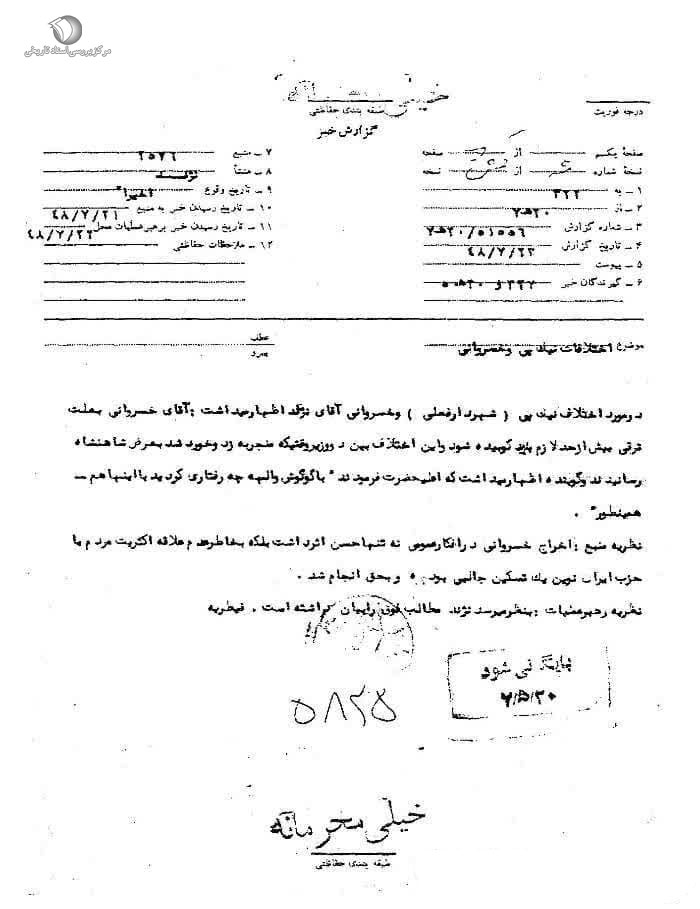 مرکز بررسی اسناد تاریخی
خیلی محرمانه
طبقه بندی حفاظتی
گزارش خبر
درجه فوریت
صفحه یکم از صفحه
نسخه شماره از نسخه
۱ ــ به ۳۲۲
۲ ــ از ۲۰ﻫ۷
۳ ــ شماره گزارش ۲۰/۵۱۵۵۶ﻫ۷
۴ ــ تاریخ گزارش ۴۸/۷/۲۳
۵ ــ پیوست
۶ ــ گیرندگان خبر
۷ ــ منبع ۲۵۷۶
۸ ــ منشأ نژند
۹ ــ تاریخ وقوع اخیرا"
۱۰ ــ تاریخ رسیدن خبر به منبع ۴۸/۷/۲۱
۱۱ ــ تاریخ رسیدن خبر برهبر عملیات محل ۴۸/۷/۲۲
۱۲ ــ ملاحظات حفاظتی
موضوع اختلافات نیک پی وخسروانی
عطف
پیرو
درمورد اختلاف نیک پی ( شهردار فعلی ) وخسروانی آقای نژند اظهار میداشت : آقای خسروانی بعلت
ترقی بیش از حد لازم باید کوبیده شود واین اختلاف بین دو وزیر وقتیکه منجربه زد وخورد شد بعرض شاهنشاه
رسانیدند وگوینده اظهار میداشت که اعلیحضرت فرمودند " باگوگوش والهه چه رفتاری کردید با اینها هم ــ
همینطور" .
نظریه منبع : اخراج خسروانی در افکار عمومی نه تنها حسن اثرداشت بلکه بخاطر عدم علاقه اکثریت مردم با
حزب ایران نوین یک تسکین جالبی بوده و بحق انجام شد .
نظریه رهبر عملیات : بنظر میرسد نژند مطالب فوق رابیان داشته است . قیطریه
بایگانی شود
۷/۵/۲۰
۵۸۲۵
خیلی محرمانه
طبقه بندی حفاظتی